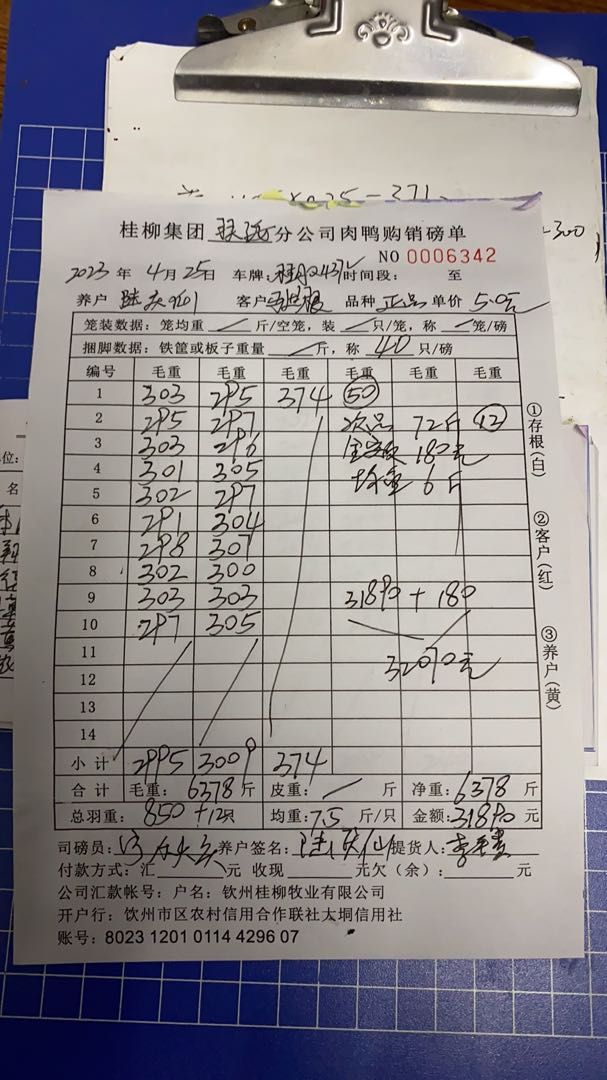 桂柳集团 分公司肉鸭购销磅单
NO 0006342
2023 年 4 月 25 日 车牌: 时间段: 至
养户 客户 品种 正品 单价 5.0元
笼装数据：笼均重 斤/空笼，装 只/笼，称 笼/磅
捆脚数据：铁筐或板子重量 斤，称 40 只/磅
编号 毛重 毛重 毛重 毛重 毛重 毛重
1 303 295 374 50
2 295 297 次品 72斤 12
3 303 296 180元
4 301 305 均重 6斤
5 302 297
6 291 304
7 298 307
8 302 300
9 303 303 31890 + 180
10 297 305
11 32070元
12
13
14
小计 2995 3009 374
合计 毛重： 6378 斤 皮重： 斤 净重：6378 斤
总羽重： 850 + 12只 均重：7.5 斤/只 金额：31890 元
司磅员： 养户签名： 提货人：
付款方式：汇 元 收现 元欠（余）： 元
公司汇款帐号：户名：钦州桂柳牧业有限公司
开户行：钦州市区农村信用合作联社大垌信用社
账号：8023 1201 0114 4296 07
①存根(白)
②客户(红)
③养户(黄)
371
300
位:
名